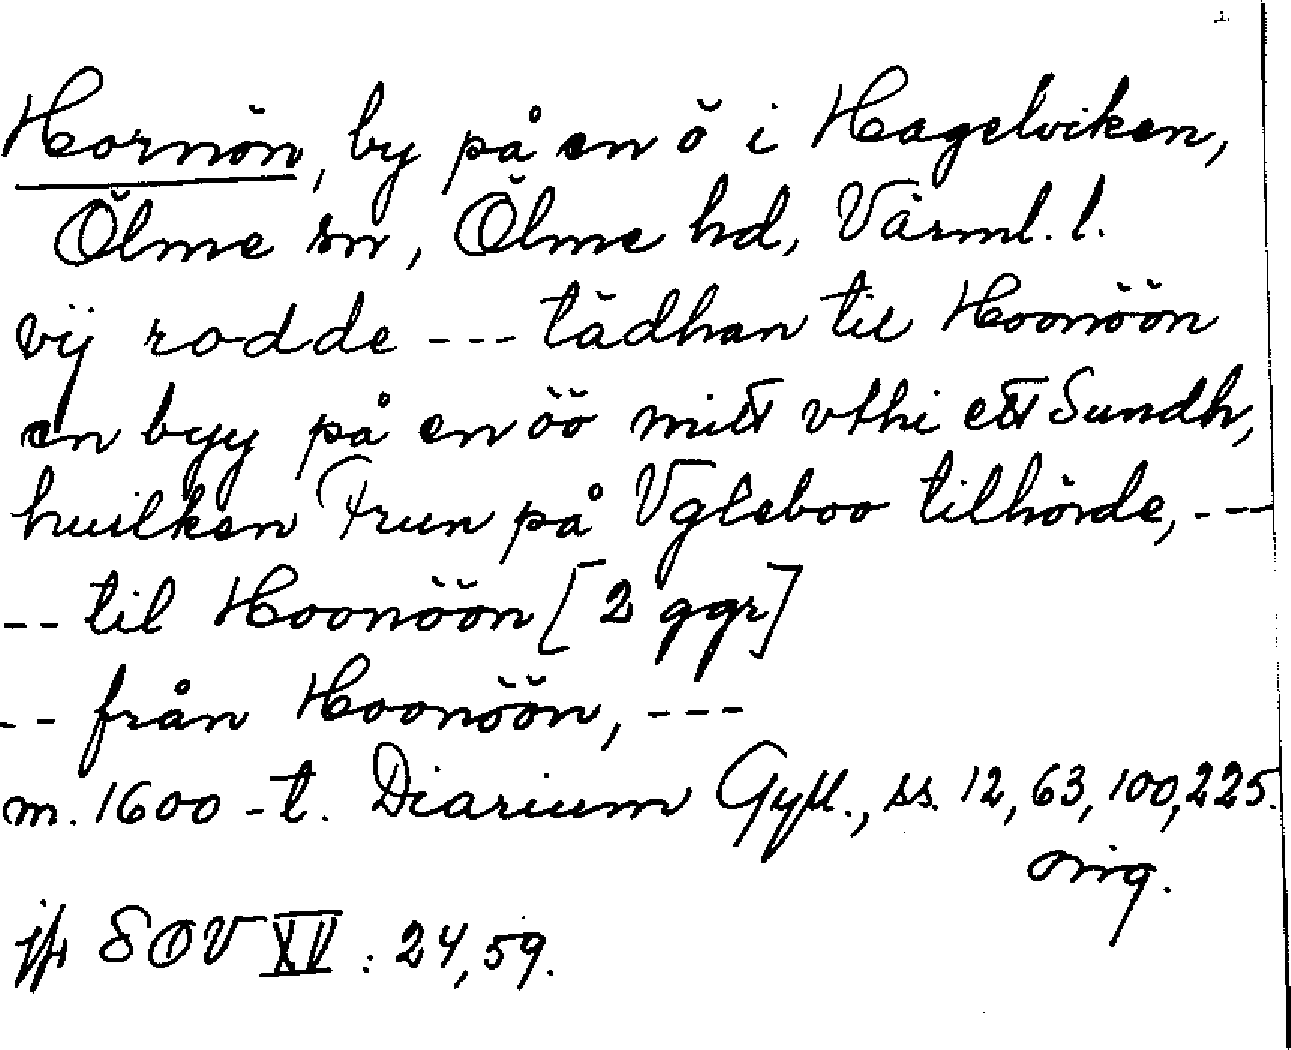 Hornön, by på en ö i Hagelviken,
Ölme sn, Ölme hd, Värml. l.
vij rodde --- tädhan til Hoonöön
en byy på en öö mitt vthi ett Sundh,
huilken Frun på Vgleboo tilhörde, ---
-- til Hoonöön [2 ggr]
-- från Hoonöön, ---
m. 1600-t. Diarium Gyll., ss. 12, 63, 100, 225.
orig.
jfr SOV XV: 24, 59.